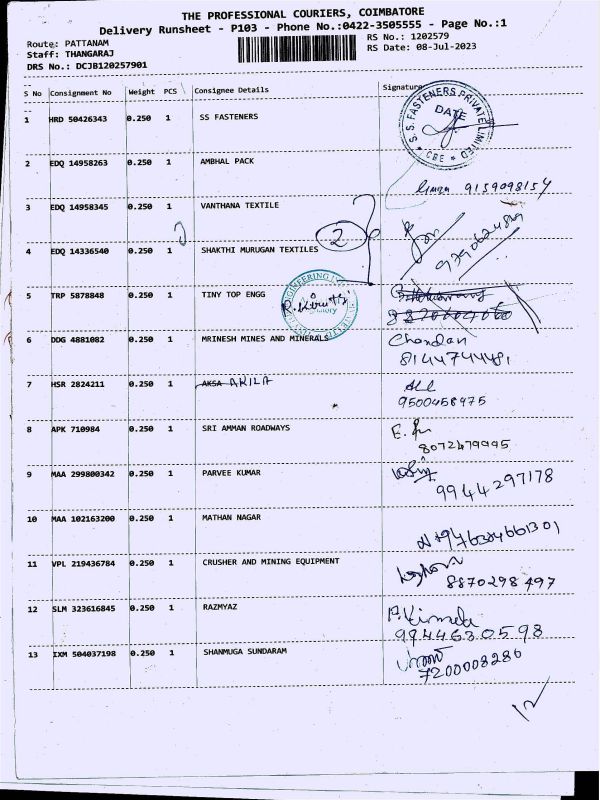 THE PROFESSIONAL COURIERS, COIMBATORE
Delivery Runsheet - P103 - Phone No.:0422-3505555 - Page No.:1
Route: PATTANAM
RS No.: 1202579
Staff: THANGARAJ
RS Date: 08-Jul-2023
DRS No.: DCJB120257901
S No Consignment No Weight PCS Consignee Details Signature
S. S. FASTENERS PRIVATE LIMITED
DATE
* CBE *
1 HRD 50426343 0.250 1 SS FASTENERS
2 EDQ 14958263 0.250 1 AMBHAL PACK
9159098154
3 EDQ 14958345 0.250 1 VANTHANA TEXTILE
2
4 EDQ 14336540 0.250 1 SHAKTHI MURUGAN TEXTILES
5 TRP 5878848 0.250 1 TINY TOP ENGG
6 DDG 4881082 0.250 1 MRINESH MINES AND MINERALS Chandan
8144744481
7 HSR 2824211 0.250 1 AKSA AKILA
9500458975
8 APK 710984 0.250 1 SRI AMMAN ROADWAYS
8072479995
9 MAA 299800342 0.250 1 PARVEE KUMAR
9944297178
10 MAA 102163200 0.250 1 MATHAN NAGAR
11 VPL 219436784 0.250 1 CRUSHER AND MINING EQUIPMENT
8870298497
12 SLM 323616845 0.250 1 RAZMYAZ
9944630598
13 IXM 504037198 0.250 1 SHANMUGA SUNDARAM
7200008286
12